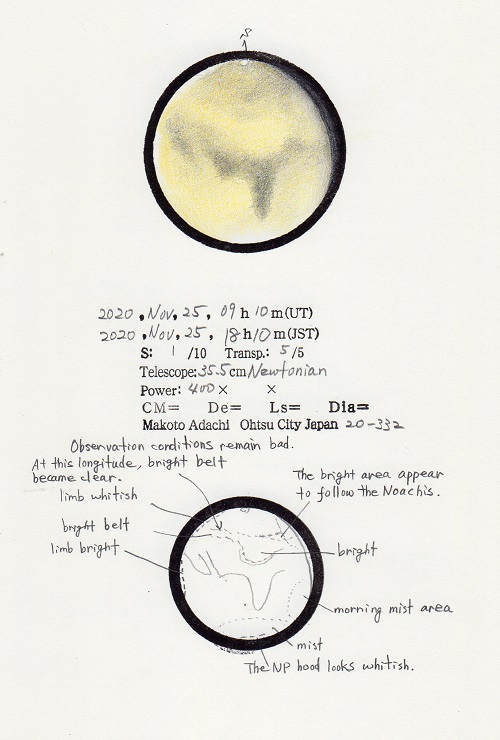 S
2020, Nov, 25, 09 h 10 m (UT)
2020, Nov, 25, 18 h 10 m (JST)
S: 1 /10 Transp.: 5 /5
Telescope: 35.5 cm Newtonian
Power: 400 × ×
CM= De= Ls= Dia=
Makoto Adachi Ohtsu City Japan 20-332
Observation conditions remain bad.
At this longitude, bright belt
became clear.
The bright area appear
to follow the Noachis.
limb whitish
bright belt
limb bright
bright
morning mist area
mist
The NP hood looks whitish.